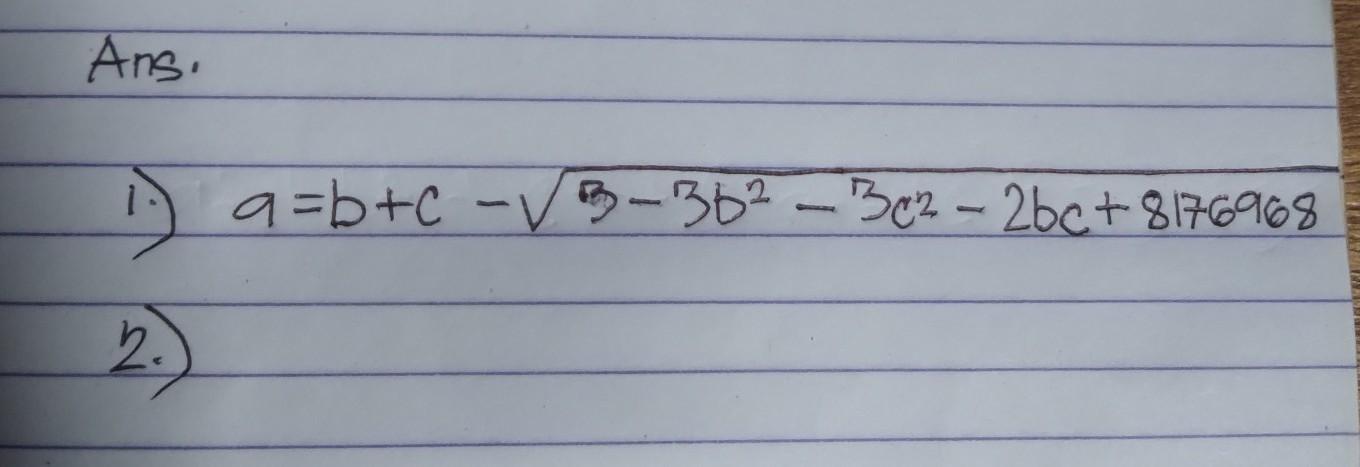 Ans.
1.) a = b + c - √3 - 3b² - 3c² - 2bc + 8176968
2.)